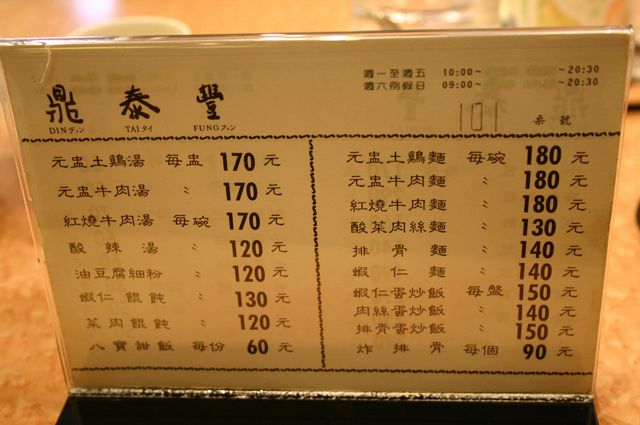 鼎 泰 豐
DINディン TAIタイ FUNGフォン
週一至週五 10:00~ ~20:30
週六例假日 09:00~ ~20:30
101 桌號
元盅土鷄湯 每盅 170 元
元盅牛肉湯 〃 170 元
紅燒牛肉湯 每碗 170 元
酸辣湯 〃 120 元
油豆腐細粉 〃 120 元
蝦仁餛飩 〃 130 元
菜肉餛飩 〃 120 元
八寶甜飯 每份 60 元
元盅土鷄麵 每碗 180 元
元盅牛肉麵 〃 180 元
紅燒牛肉麵 〃 180 元
酸菜肉絲麵 〃 130 元
排骨麵 〃 140 元
蝦仁麵 〃 140 元
蝦仁蛋炒飯 每盤 150 元
肉絲蛋炒飯 〃 140 元
排骨蛋炒飯 〃 150 元
炸排骨 每個 90 元